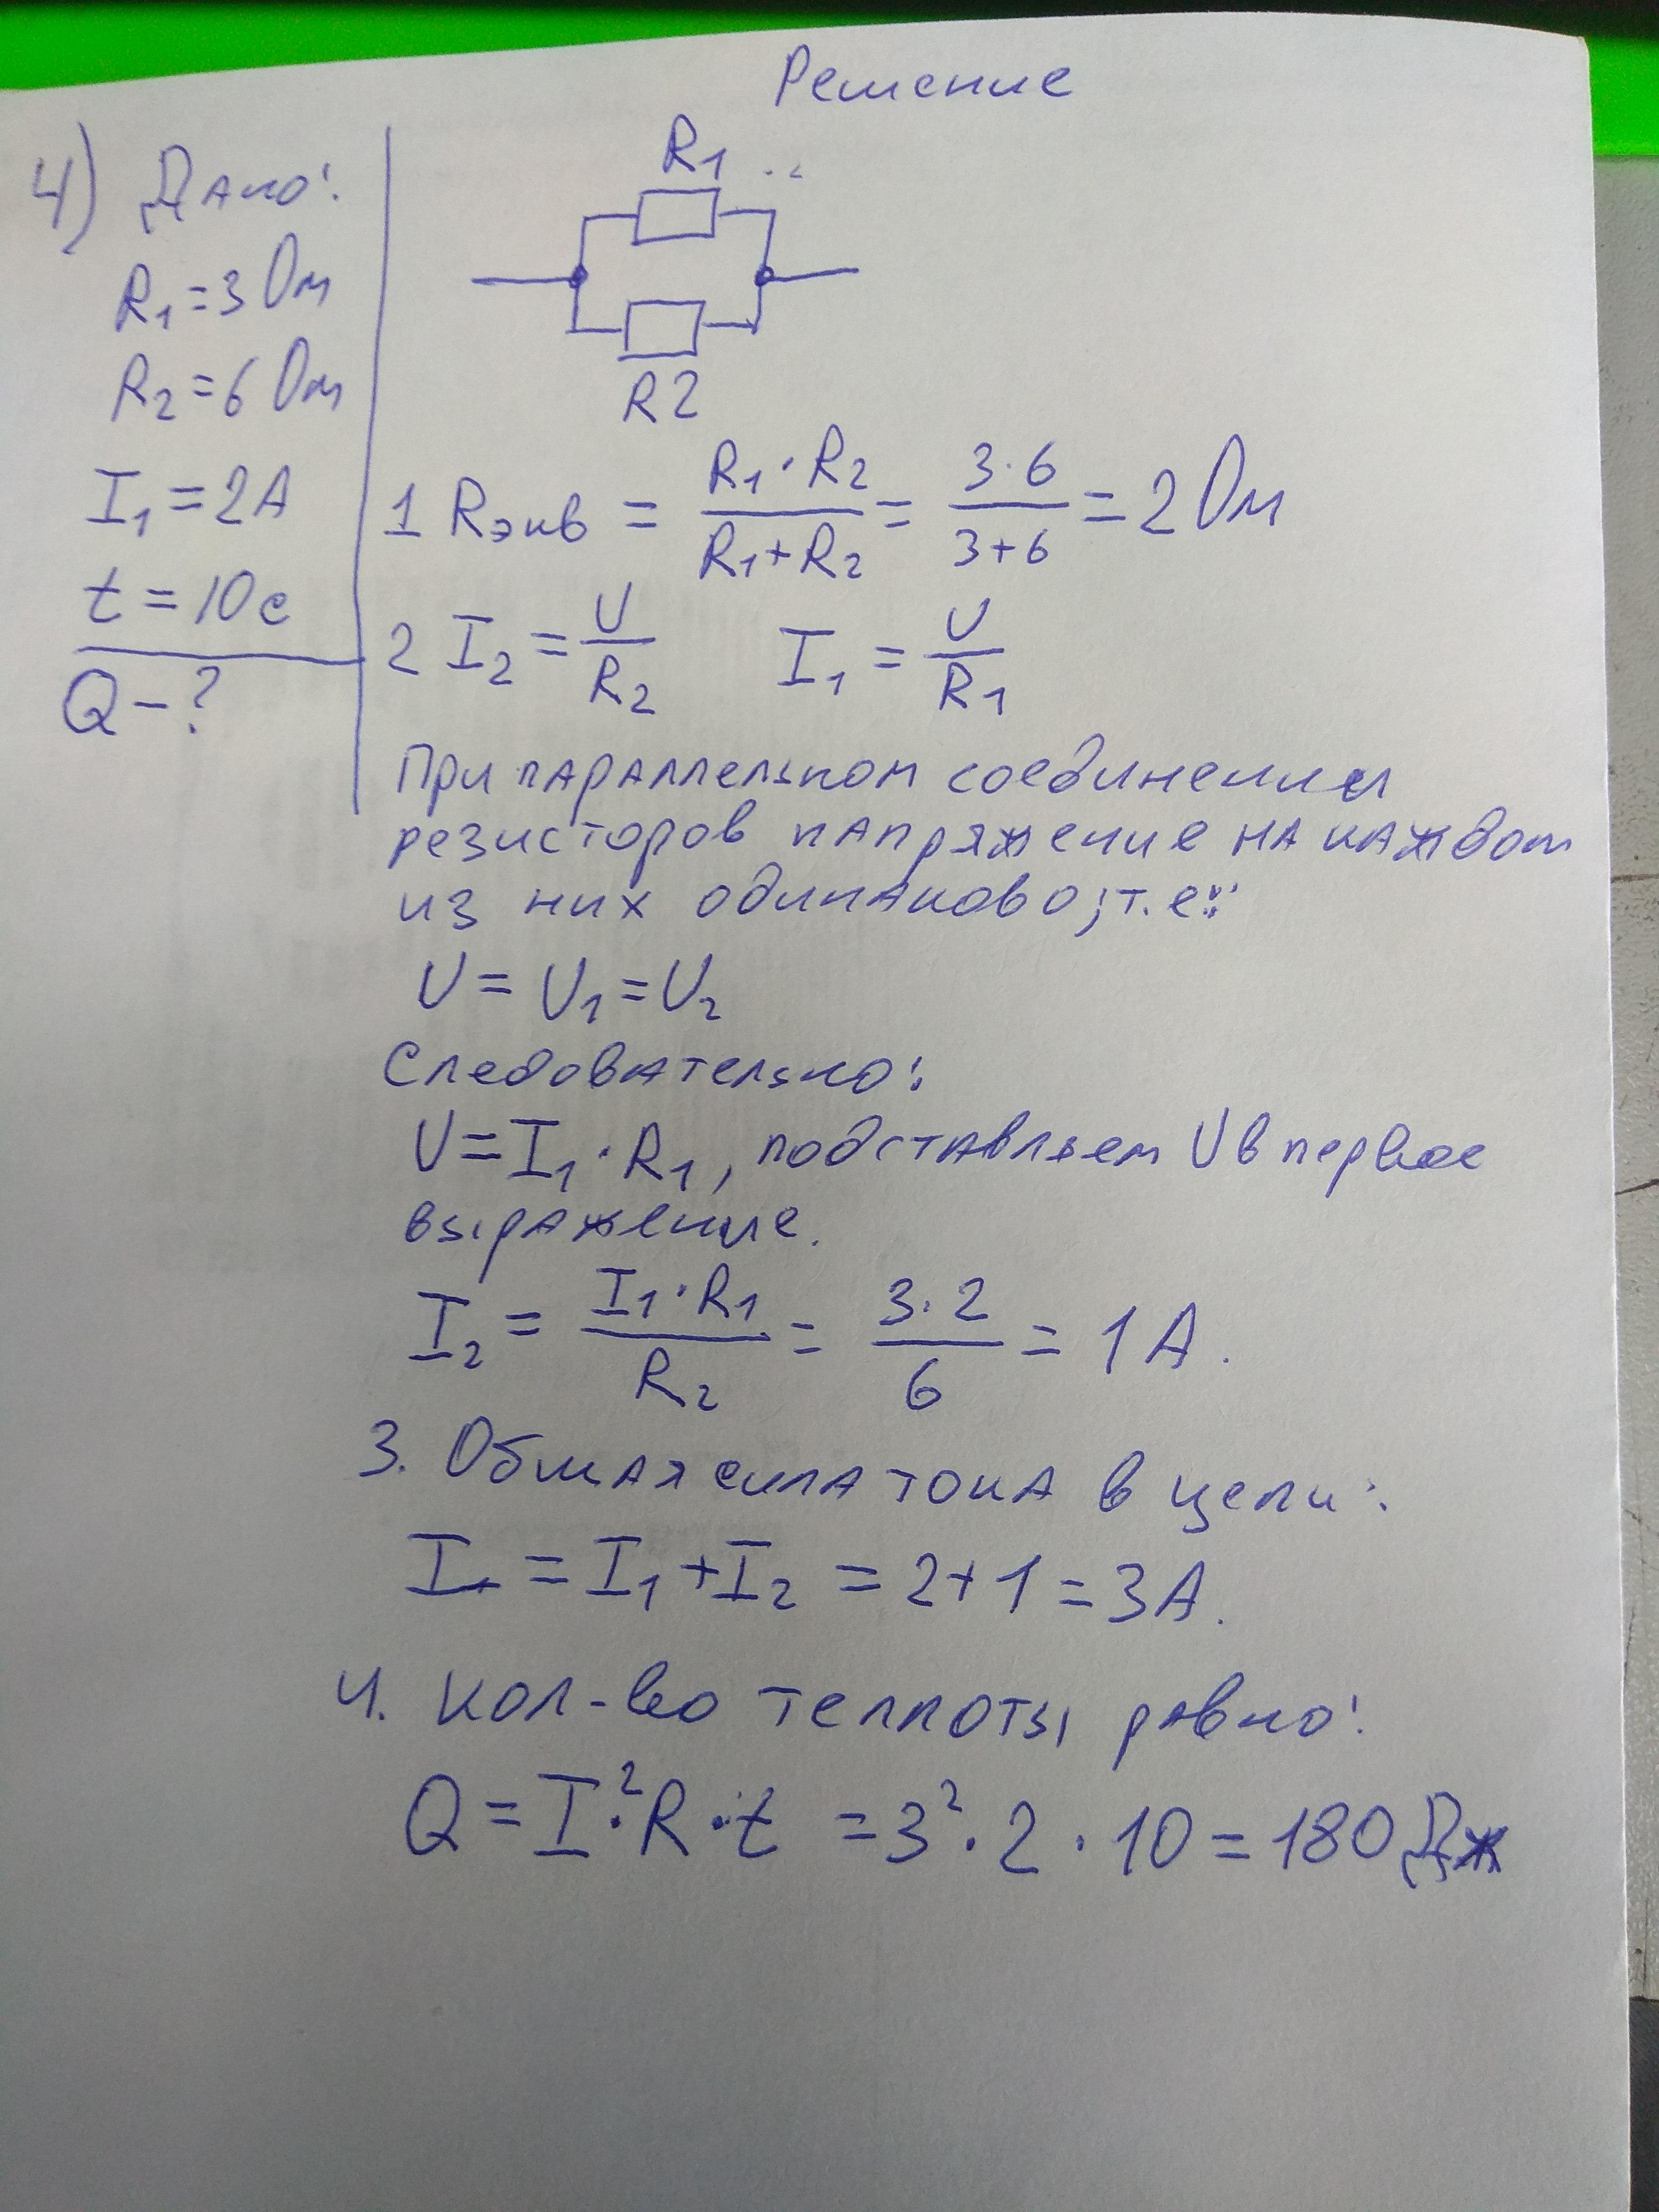 Решение
4) Дано:
R1=3 Ом
R2=6 Ом
I1=2А
t=10с
Q-?
R1
R2
1 Rэкв = (R1·R2)/(R1+R2) = (3·6)/(3+6) = 2 Ом
2 I2 = U/R2 I1 = U/R1
При параллельном соединении
резисторов напряжение на каждом
из них одинаково, т.е:
U = U1 = U2
Следовательно:
U = I1·R1, подставляем U в первое
выражение.
I2 = (I1·R1)/R2 = (3·2)/6 = 1 А.
3. Общая сила тока в цепи:
I = I1+I2 = 2+1 = 3А.
4. Кол-во теплоты равно:
Q = I²·R·t = 3²·2·10 = 180 Дж